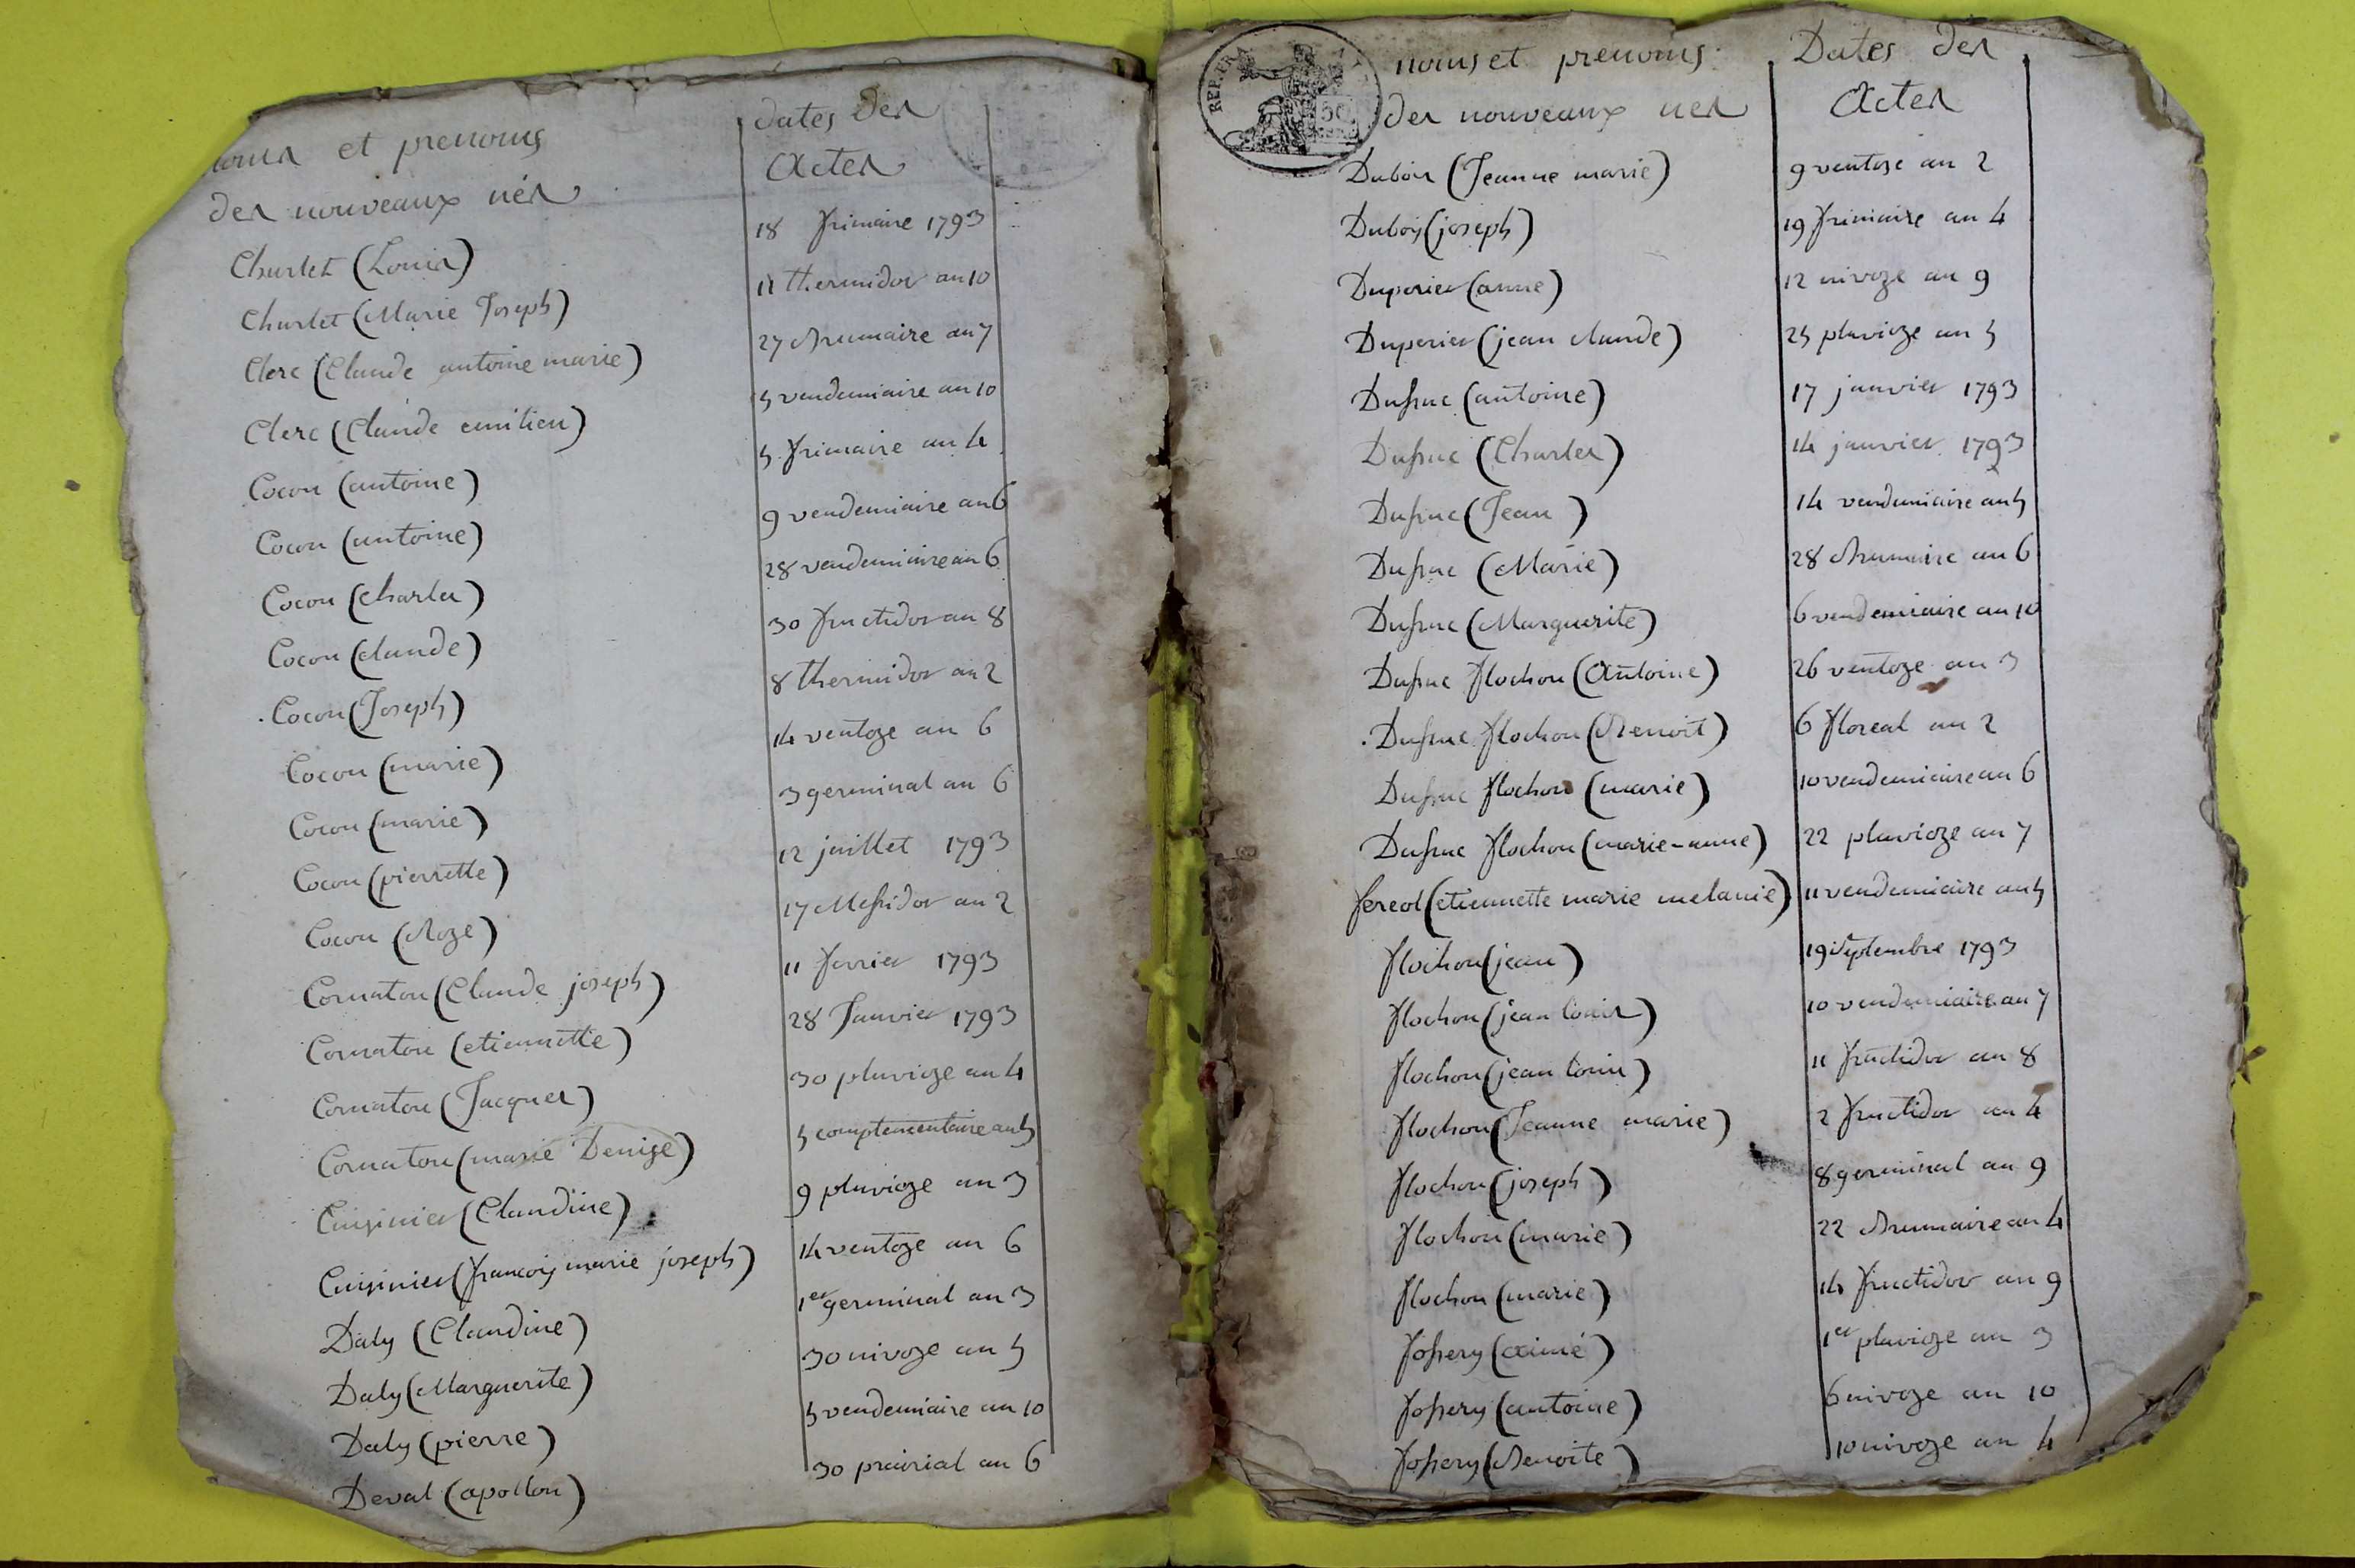 noms et prenoms dates des
des nouveaux nés Actes
Charlet (Louis) 18 frimaire 1793
Charlet (Marie Joseph) 11 thermidor an 10
Clerc (Claude antoine marie) 27 brumaire an 7
Clerc (Claude emilien) 5 vendemiaire an 10
Cocon (antoine) 5 frimaire an 4
Cocon (antoine) 9 vendemiaire an 6
Cocon (charles) 28 vendemiaire an 6
Cocon (claude) 30 fructidor an 8
Cocon (Joseph) 8 thermidor an 2
Cocon (marie) 14 ventoze an 6
Cocon (marie) 3 germinal an 6
Cocon (pierrette) 12 juillet 1793
Cocon (Roze) 17 Messidor an 2
Cornaton (Claude joseph) 11 fevrier 1793
Cornaton (etiennette) 28 Janvier 1793
Cornaton (Jacques) 30 pluvioze an 4
Cornaton (marie Denise) 5 complementaire an 5
Cuisinier (Claudine) 9 pluvioze an 3
Cuisinier (francois marie joseph) 14 ventoze an 6
Daly (Claudine) 1er germinal an 3
Daly (Marguerite) 30 nivoze an 5
Daly (pierre) 5 vendemiaire an 10
Deval (apollon) 30 prairial an 6
REP. FRA
50
noms et prenoms Dates des
des nouveaux nes Actes
Dubois (Jeanne marie) 9 ventoze an 2
Dubois (joseph) 19 frimaire an 4
Duperier (anne) 12 nivoze an 9
Duperier (jean claude) 25 pluvioze an 5
Dussuc (antoine) 17 janvier 1793
Dussuc (Charles) 14 janvier 1793
Dussuc (Jean) 14 vendemiaire an 5
Dussuc (Marie) 28 brumaire an 6
Dussuc (Marguerite) 6 vendemiaire an 10
Dussuc flochon (Antoine) 26 ventoze an 3
Dussuc flochon (Benoit) 6 floreal an 2
Dussuc flochon (marie) 10 vendemiaire an 6
Dussuc flochon (marie-anne) 22 pluvioze an 7
fereol (etiennette marie melanie) 11 vendemiaire an 5
flochon (jean) 19 Septembre 1793
flochon (jean louis) 10 vendemiaire an 7
flochon (jean louis) 11 fructidor an 8
flochon (Jeanne marie) 2 fructidor an 4
flochon (joseph) 8 germinal an 9
flochon (marie) 22 brumaire an 4
flochon (marie) 14 fructidor an 9
fossery (aimé) 1er pluvioze an 3
fossery (antoine) 6 nivoze an 10
fossery (Benoite) 10 nivoze an 4